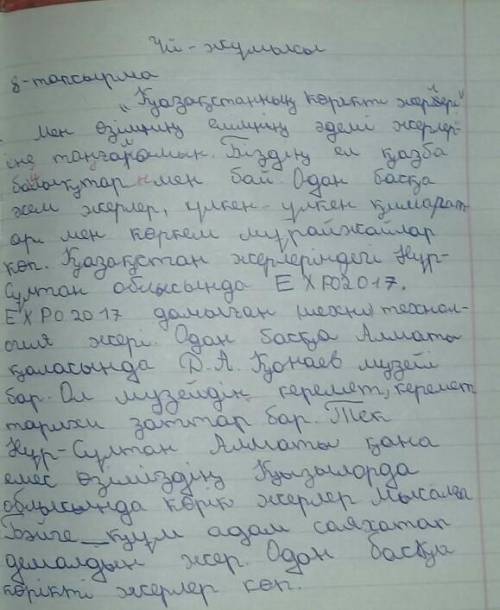 Үй-жұмысы
8-тапсырма
"Қазақстанның көрікті жерлері"
Мен өзімнің елімнің әдемі жерлері-
не таңғаламын. Біздің ел қазба
байлықтармен бай. Одан басқа
әсем жерлер, үлкен-үлкен ғимарат
тар мен көркем мұрайжайлар
көп. Қазақстан жерлеріндегі Нұр-
Сұлтан облысында EXPO2017.
EXPO2017 дамыған технол-
огия жері. Одан басқа Алматы
қаласында Д.А. Қонаев музейі
бар. Ол музейдің керемет, керемет
тарихи заттар бар. Тек
Нұр-Сұлтан Алматы қана
емес өзіміздің Қызылорда
облысында көрікі жерлер мысалға
құм адам саяхатап
демалдын жер. Одан басқа
көрікті жерлер көп.